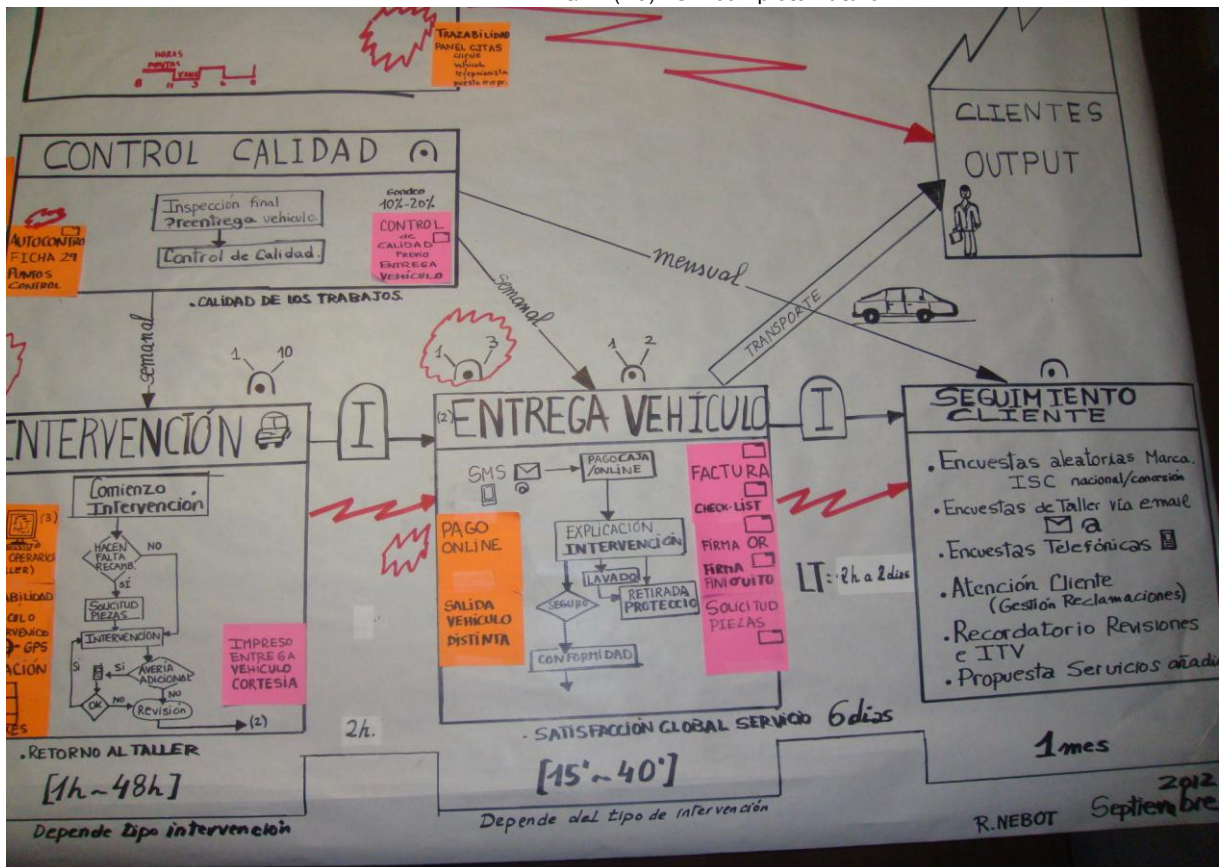 TRAZABILIDAD
PANEL CITAS
cliente
vehículo
recepcionista
HORAS
PUNTAS
VALLE
CLIENTES
OUTPUT
CONTROL CALIDAD
Inspección final
Preentrega vehículo
Control de Calidad.
Sondeo
10%-20%
CONTROL
de
CALIDAD
PREVIO
ENTREGA
VEHÍCULO
AUTOCONTRO
FICHA 29
PUNTOS
CONTROL
.CALIDAD DE LOS TRABAJOS.
semanal
semanal
mensual
TRANSPORTE
1 10
1 3
1 2
INTERVENCIÓN
I
(2) ENTREGA VEHÍCULO
I
SEGUIMIENTO
CLIENTE
Comienzo
Intervención
HACEN
FALTA
RECAMB.
NO
SÍ
SOLICITUD
PIEZAS
INTERVENCIÓN
AVERIA
ADICIONAL
Si
Si
NO
OK
NO
Revisión
(2)
(3)
OPERARIOS
LLER)
ABILIDAD
CULO
GPS
ACIÓN
RES
IMPRESO
ENTREGA
VEHICULO
CORTESÍA
SMS
@
PAGO CAJA
/ONLINE
EXPLICACIÓN
INTERVENCIÓN
LAVADO
RETIRADA
PROTECCIO
SEGURO
CONFORMIDAD
PAGO
ONLINE
SALIDA
VEHÍCULO
DISTINTA
FACTURA
CHECK-LIST
FIRMA OR
FIRMA
FINIQUITO
SOLICITUD
PIEZAS
LT: 2h a 2 dias
. Encuestas aleatorias Marca.
ISC nacional/concesión
. Encuestas de Taller vía email
@
. Encuestas Telefónicas
. Atención Cliente
(Gestión Reclamaciones)
. Recordatorio Revisiones
e ITV
. Propuesta Servicios añadi
.RETORNO AL TALLER
[1h~48h]
Depende tipo intervención
2h.
. SATISFACCIÓN GLOBAL SERVICIO
[15'~40']
Depende del tipo de intervención
6 dias
1 mes
R.NEBOT
2012
Septiembre